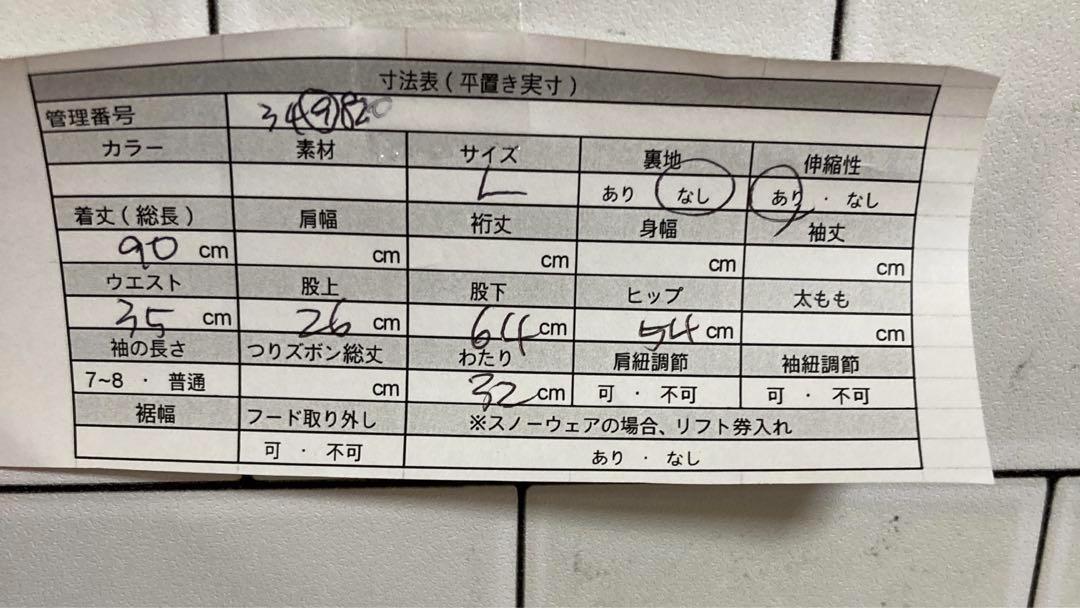 寸法表(平置き実寸)
管理番号 34⑨820
カラー 素材 サイズ 裏地 伸縮性
L あり なし あり ・ なし
着丈(総長) 肩幅 裄丈 身幅 袖丈
90 cm cm cm cm cm
ウエスト 股上 股下 ヒップ 太もも
35 cm 26 cm 64 cm 54 cm cm
袖の長さ つりズボン総丈 わたり 肩紐調節 袖紐調節
7~8 ・ 普通 cm 32 cm 可 ・ 不可 可 ・ 不可
裾幅 フード取り外し ※スノーウェアの場合、リフト券入れ
可 ・ 不可 あり ・ なし